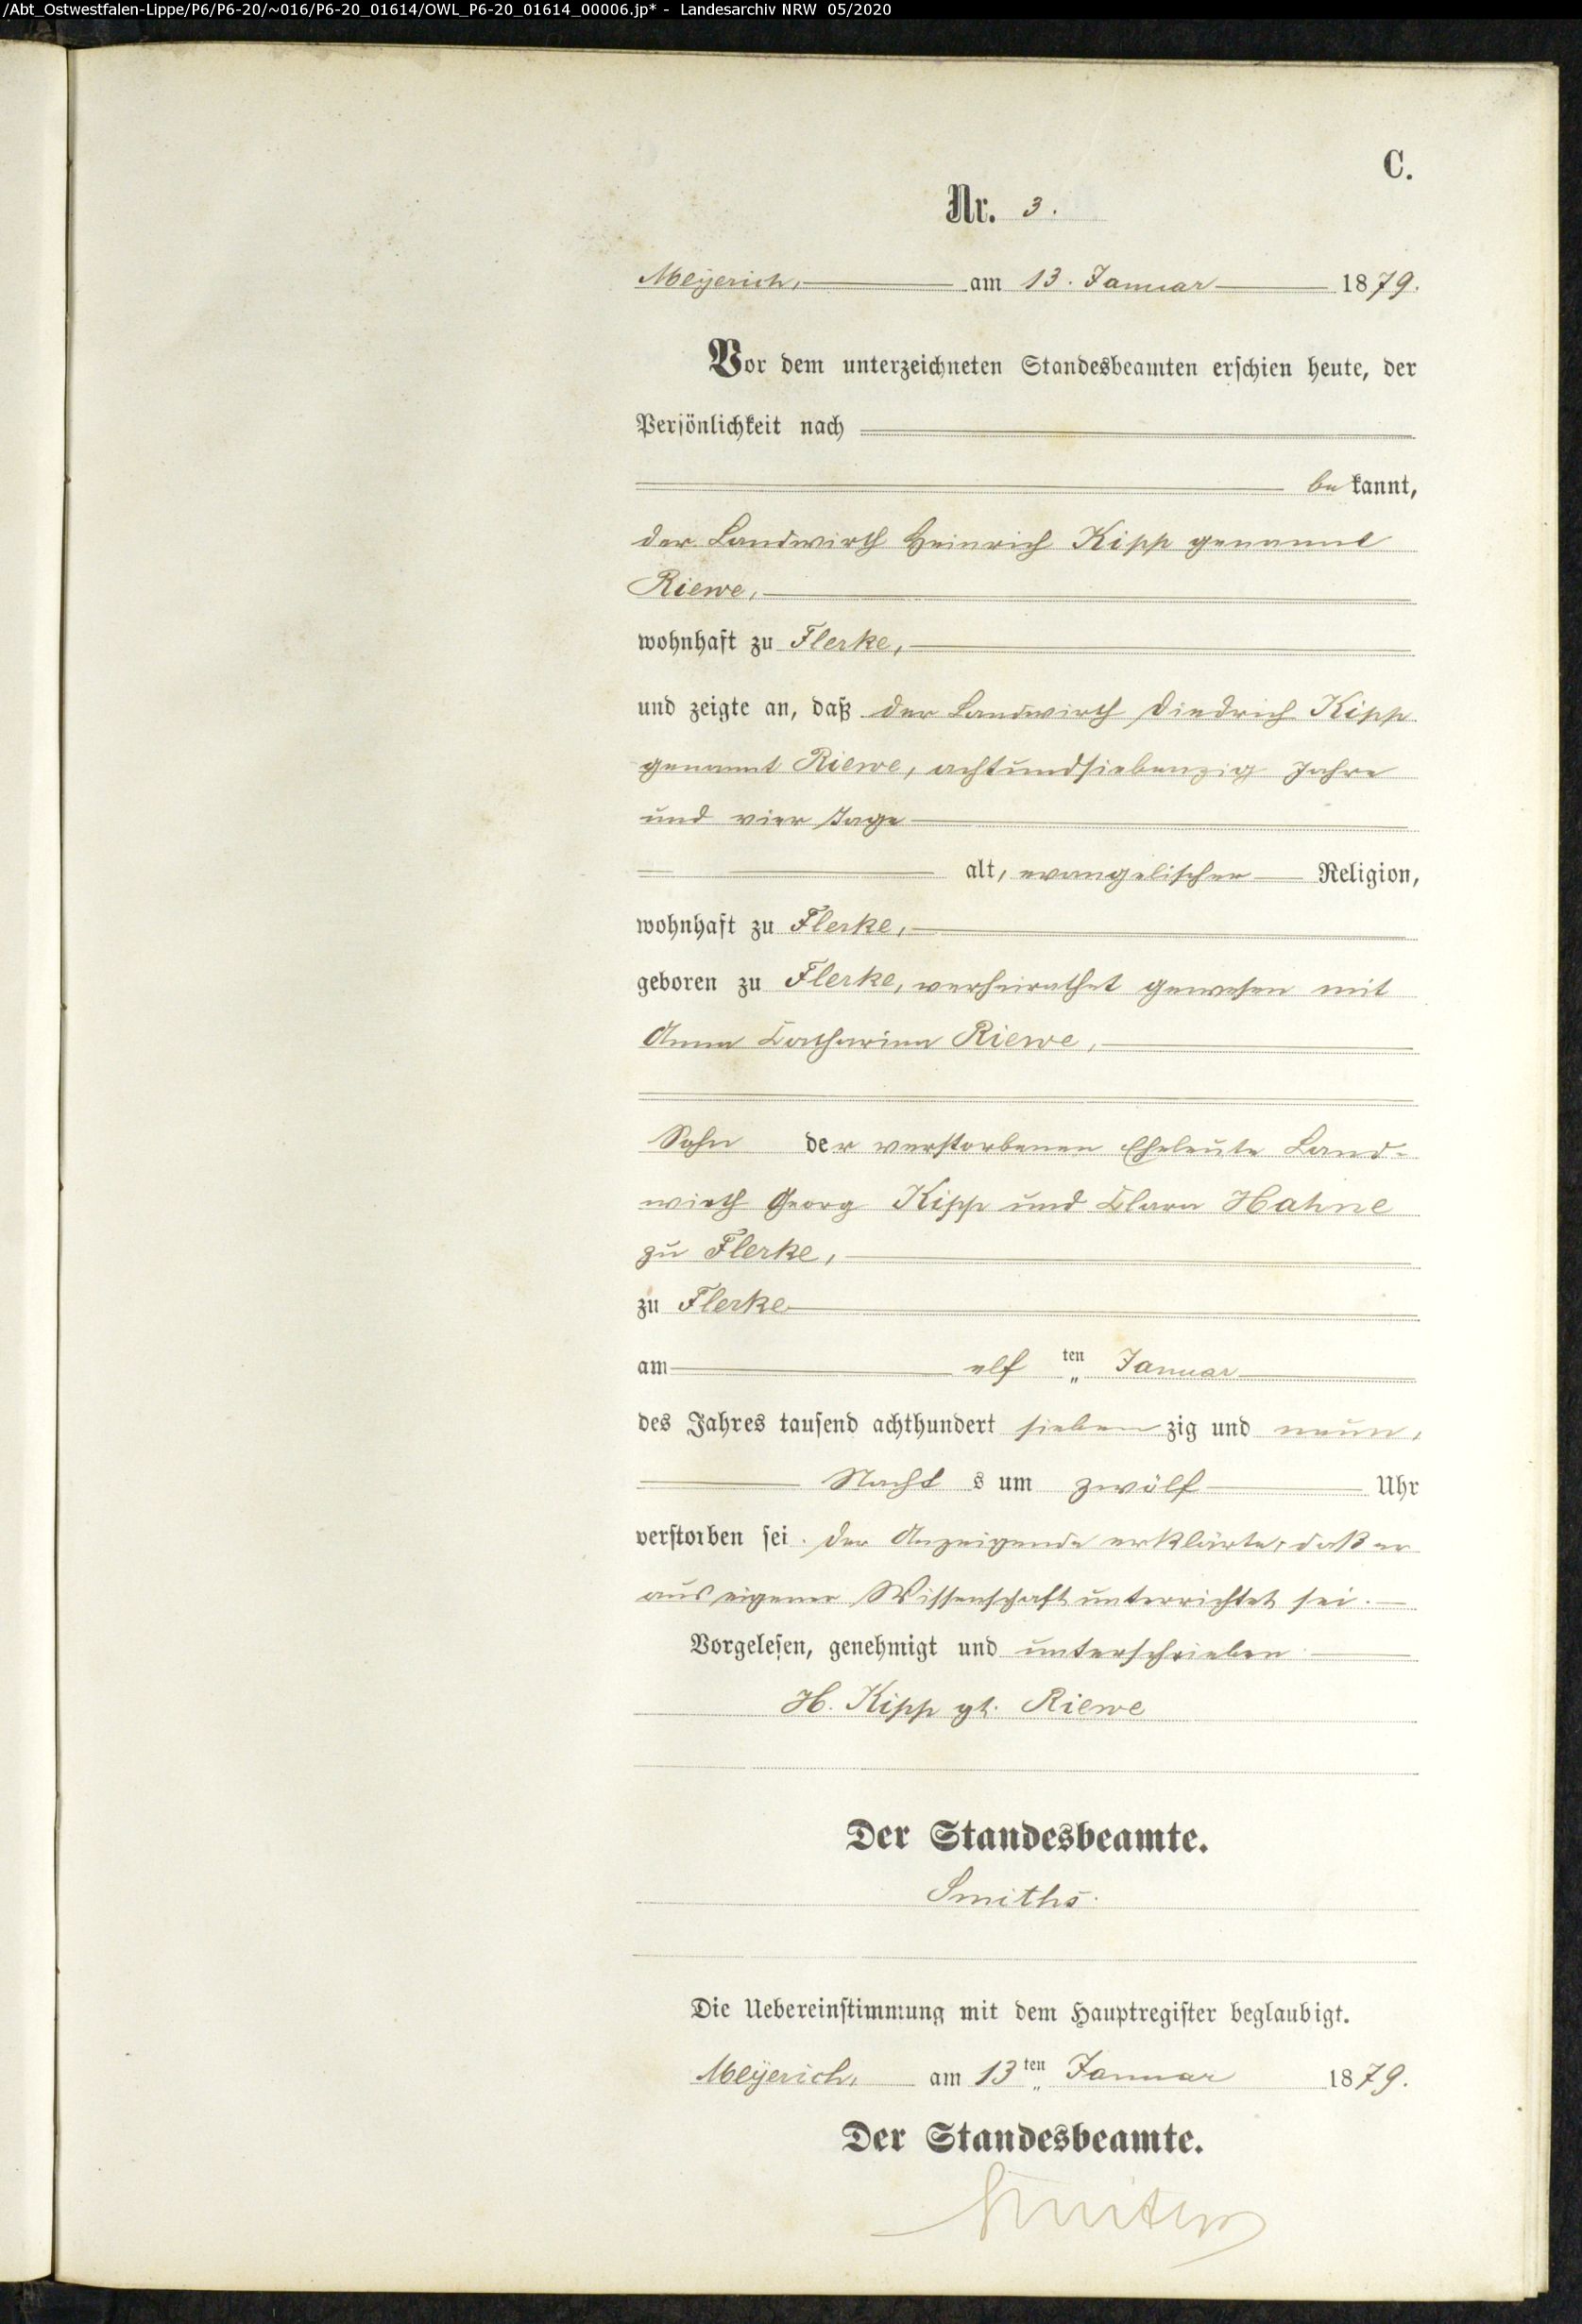 /Abt_Ostwestfalen-Lippe/P6/P6-20/~016/P6-20_01614/OWL_P6-20_01614_00006.jp* - Landesarchiv NRW 05/2020
C.
Nr. 3.
Meÿerich, am 13. Januar 1879.
Vor dem unterzeichneten Standesbeamten erschien heute, der
Persönlichkeit nach
bekannt,
der Landwirth Heinrich Kipp genannt
Riewe,
wohnhaft zu Flerke,
und zeigte an, daß der Landwirth Diedrich Kipp
genannt Riewe, achtundsiebenzig Jahre
und vier Tage
alt, evangelischer Religion,
wohnhaft zu Flerke,
geboren zu Flerke, verheirathet gewesen mit
Anna Catharina Riewe,
Sohn der verstorbenen Eheleute Land-
wirth Georg Kipp und Clara Hahne
zu Flerke,
zu Flerke
am elf ten Januar
des Jahres tausend achthundert siebenzig und neun,
Nachts um zwölf Uhr
verstorben sei. Der Anzeigende erklärte, daß er
aus eigener Wissenschaft unterrichtet sei.
Vorgelesen, genehmigt und unterschrieben
H. Kipp gt. Riewe
Der Standesbeamte.
Smiths.
Die Uebereinstimmung mit dem Hauptregister beglaubigt.
Meÿerich, am 13ten Januar 1879.
Der Standesbeamte.
Smiths